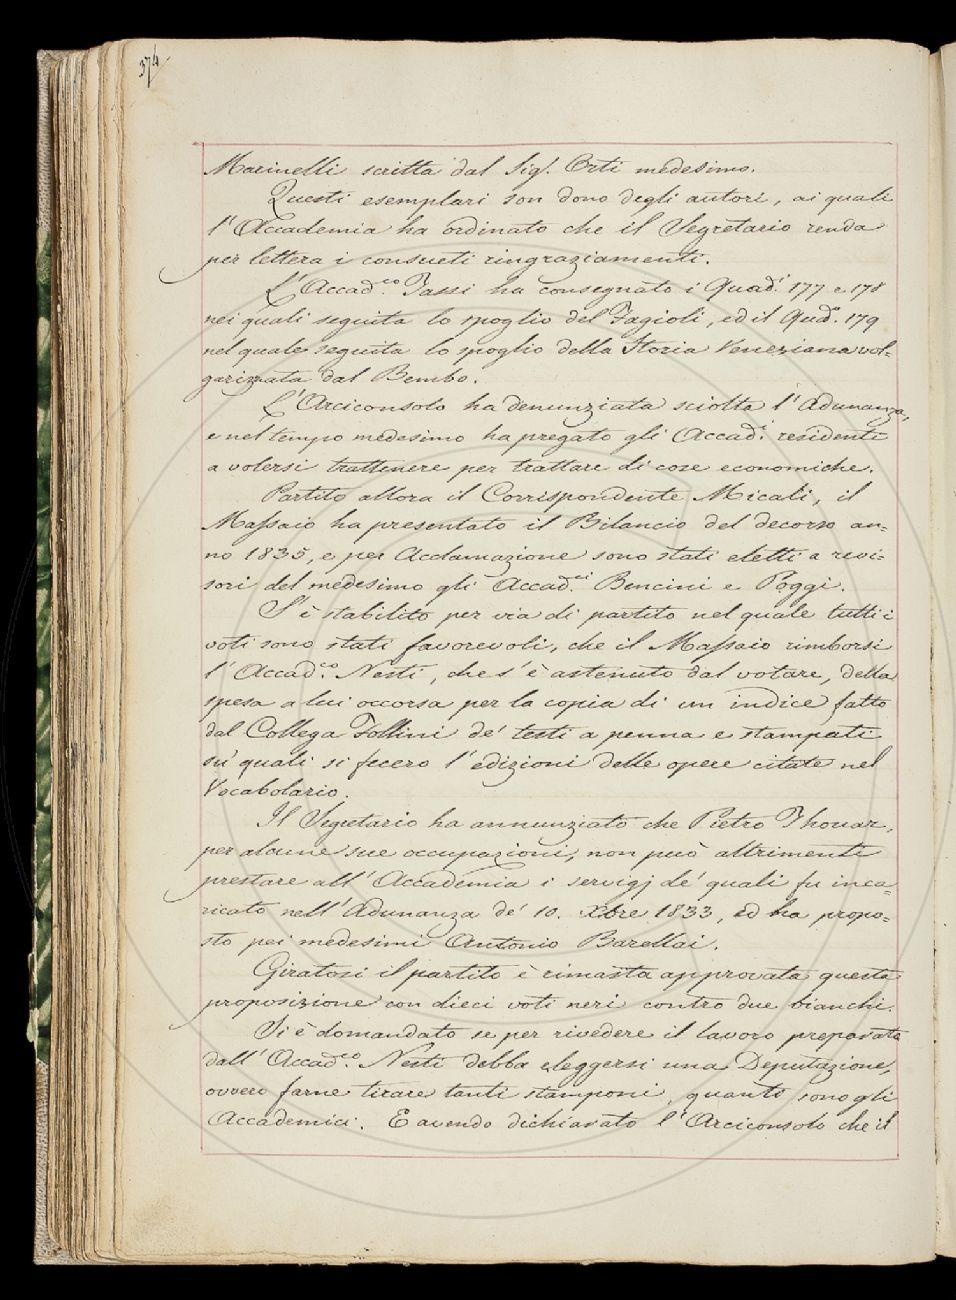 374
Marinelli scritta dal Sig. Orti medesimo.
Questi esemplari son dono degli autori, ai quali
l'Accademia ha ordinato che il Segretario renda
per lettera i consueti ringraziamenti.
L'Accad.co Tassi ha consegnato i Quad.i 177 e 178
nei quali seguita lo spoglio del Fagioli, ed il Quad.o 179
nel quale seguita lo spoglio della Storia Veneziana vol=
garizzata dal Bembo.
L'Arciconsolo ha denunziata sciolta l'Adunanza,
e nel tempo medesimo ha pregato gli Accad.i residenti
a volersi trattenere per trattare di cose economiche.
Partito allora il Corrispondente Micali, il
Massaio ha presentato il Bilancio del decorso an=
no 1835, e per Acclamazione sono stati eletti a revi=
sori del medesimo gli Accad.ci Bencini e Poggi.
S'è stabilito per via di partito nel quale tutti i
voti sono stati favorevoli, che il Massaio rimborsi
l'Accad.co Nesti, che s'è astenuto dal votare, della
spesa a lui occorsa per la copia di un indice fatto
dal Collega Follini de' testi a penna e stampati
su' quali si fecero l'edizioni delle opere citate nel
Vocabolario.
Il Segretario ha annunziato che Pietro Thouar,
per alcune sue occupazioni, non può altrimenti
prestare all'Accademia i servigj de' quali fu inca=
ricato nell'Adunanza de' 10. Xbre 1833, ed ha propo=
sto pei medesimi Antonio Barellai.
Giratosi il partito è rimasta approvata questa
proposizione con dieci voti neri contro due bianchi.
Si è domandato se per rivedere il lavoro preparato
dall'Accad.co Nesti debba eleggersi una Deputazione,
ovvero farne tirare tanti stamponi, quanti sono gli
Accademici. E avendo dichiarato l'Arciconsolo che il